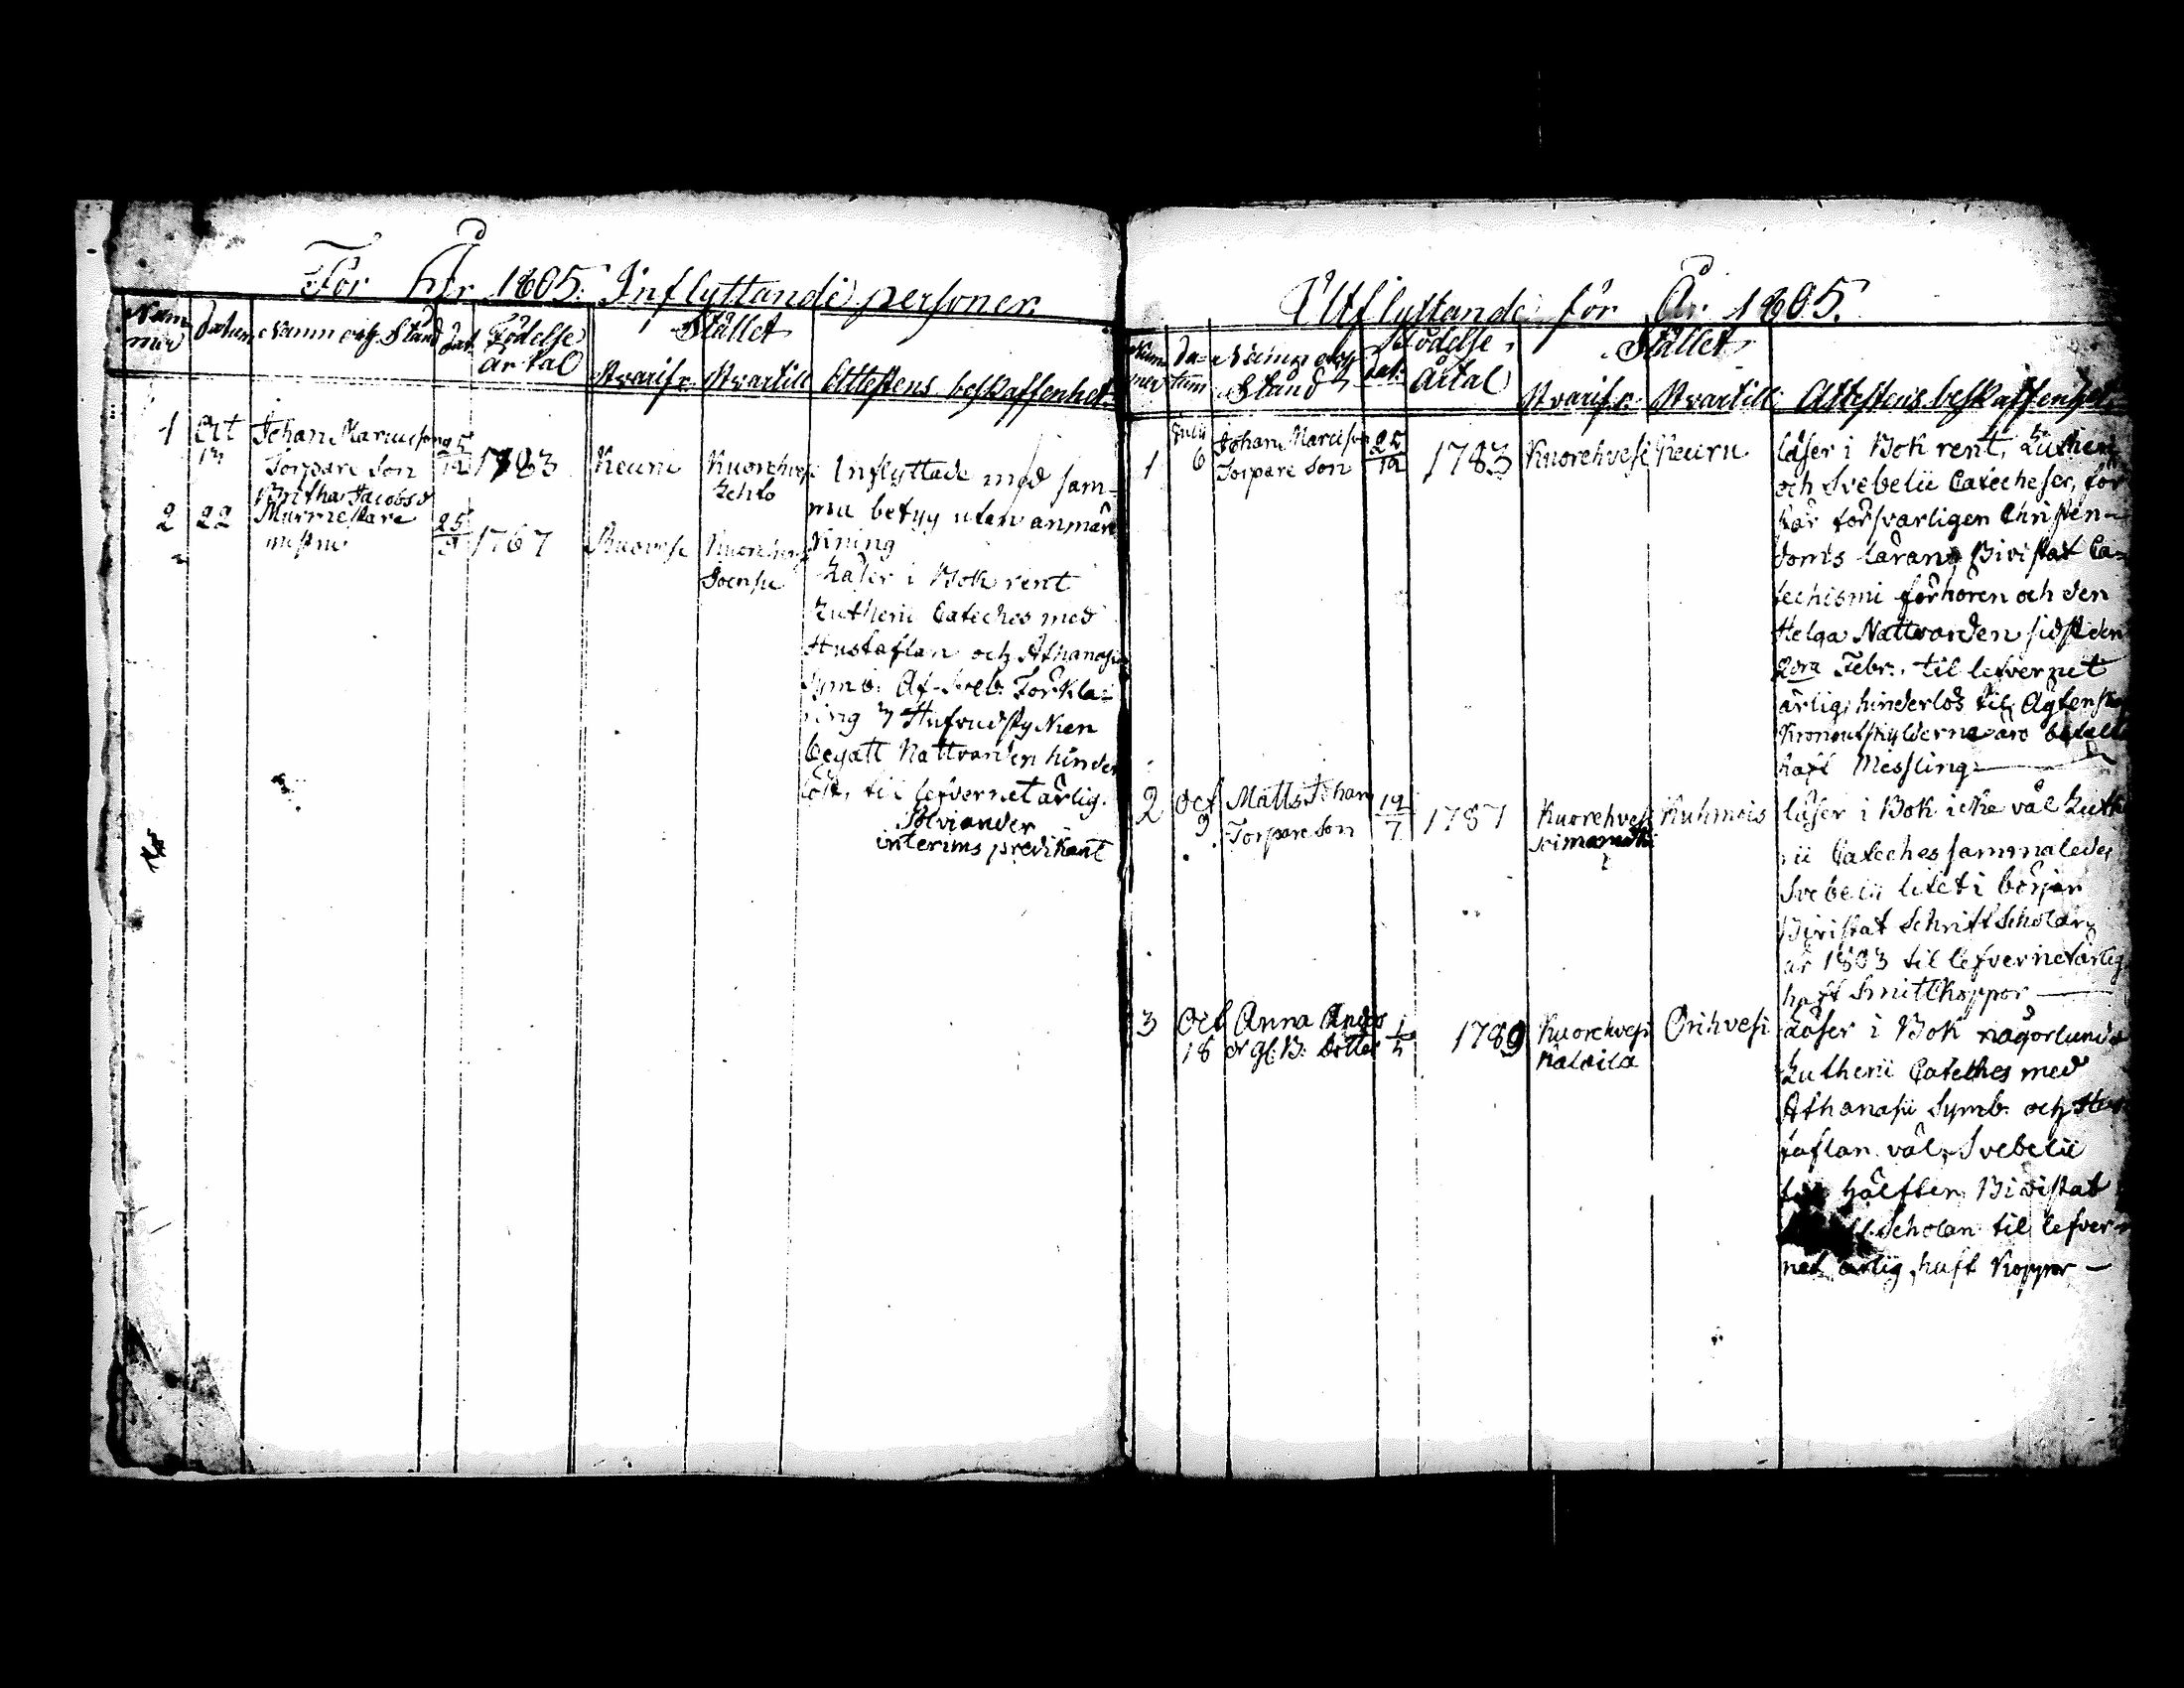 För År 1805. Inflyttande personer.
Num mer Datum Namn och Stånd Dat. Födelse år tal Stället Hvarifr. Hvartill Attestens beskaffenhet.
1 Oct 13 Johan Marcusson Torpare Son 25/12 1783 Keuru Kuorehvesi Lehto
Inflyttade med sam-
ma betyg utan anmärk
ning
2 22 Britha Jacobsd Murmestare 25/9 1767 Kuorehvesi
Läser i Bok rent
Lutheri Cateches med
Hustaflan och Athanasii
Symb. Af Sveb. Förkla-
ring 3 Hufvudstycken
begått Nattvarden hinder
lös, til lefvernet ärlig.
Polviander
interims predikant
Utflyttande för År 1805.
Num mer Da- tum Namn och Stånd Dat: Födelse Årtal Stället Hvarifr: Hvartill: Attestens beskaffenhet.
1 July 6 Johan Marcusson Torpare Son 25/12 1783 Kuorehvesi Keuru
läser i Bok rent, Lutheri
och Svebelii Catecheser, för
står försvarligen Christen-
doms läran, Bivistat Ca-
techismi förhören och den
Helga Nattvarden sidst den
2dra Febr. til lefvernet
ärlig, hinderlös til Ägtenskap
Kronoutskylderna äro betalte
haft Messling
2 Oct 9 Matts Johan Torpare Son 19/7 1787 Kuorehvesi Kuhmois
läser i Bok icke väl Luthe
rii Cateches sammaledes
Svebelii litet i början
Bivistat Schrift Scholan
år 1803 til lefvernet ärlig
haft Smittkoppor
3 Oct 18 Anna Anders dotter 1789 Kuorehvesi Orihvesi
Läser i Bok någorlunda
Lutherii Cateches med
Athanasii Symb. och Hus
taflan väl, Svebelii
hälften Bivistat
Scholan til lefver-
net ärlig, haft Koppor